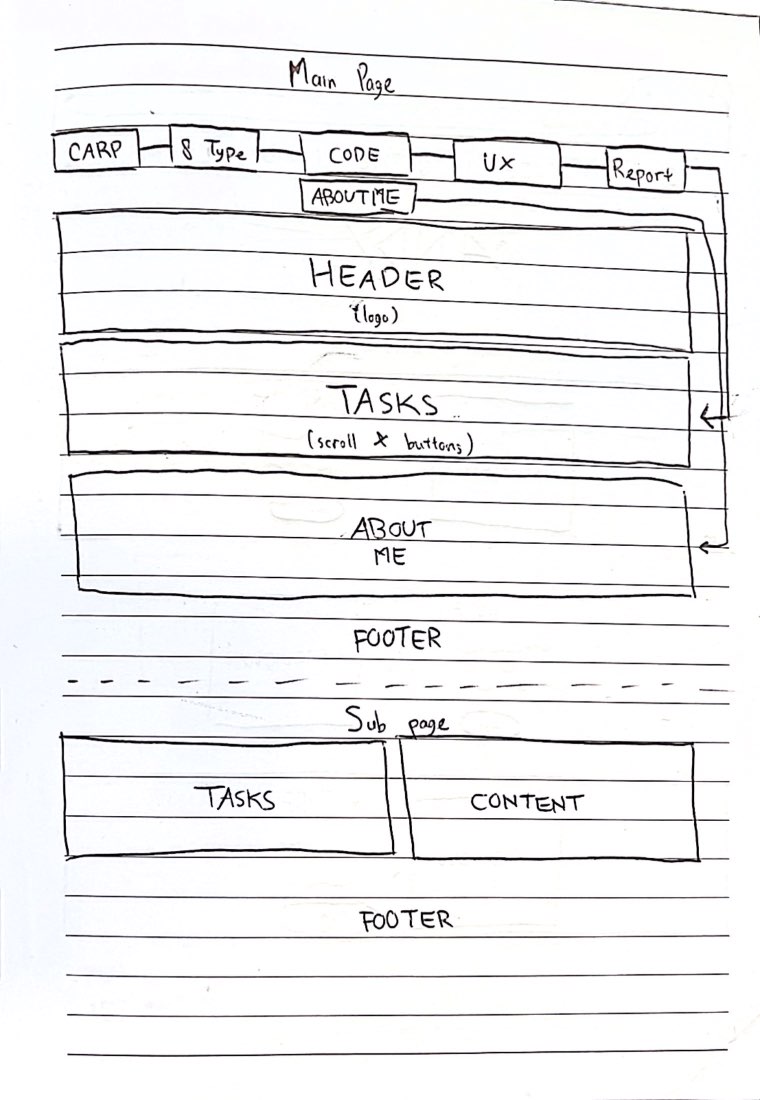 Main Page
CARP
8 Type
CODE
UX
Report
ABOUT ME
HEADER
(logo)
TASKS
(scroll X buttons)
ABOUT
ME
FOOTER
Sub page
TASKS
CONTENT
FOOTER